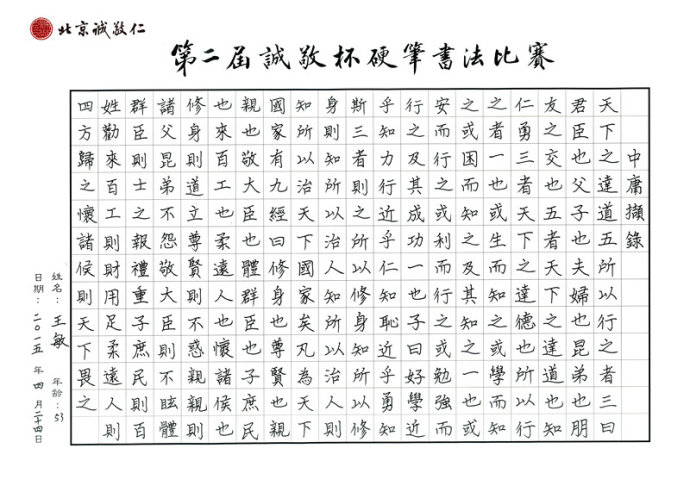 北京誠敬仁
第二屆誠敬杯硬筆書法比賽
中庸擷錄
天下之達道五所以行之者三曰
君臣也父子也夫婦也昆弟也朋
友之交也五者天下之達道也知
仁勇三者天下之達德也所以行
之者一也或生而知之或學而知
之或困而知之及其知之一也或
安而行之或利而行之或勉強而
行之及其成功一也子曰好學近
乎知力行近乎仁知恥近乎勇知
斯三者則知所以修身知所以修
身則知所以治人知所以治人則
知所以治天下國家矣凡為天下
國家有九經曰修身也尊賢也親
親也敬大臣也體群臣也子庶民
也來百工也柔遠人也懷諸侯也
修身則道立尊賢則不惑親親則
諸父昆弟不怨敬大臣則不眩體
群臣則士之報禮重子庶民則百
姓勸來百工則財用足柔遠人則
四方歸之懷諸侯則天下畏之
姓名：王敏 年齡：53
日期：二〇一五年四月二十四日